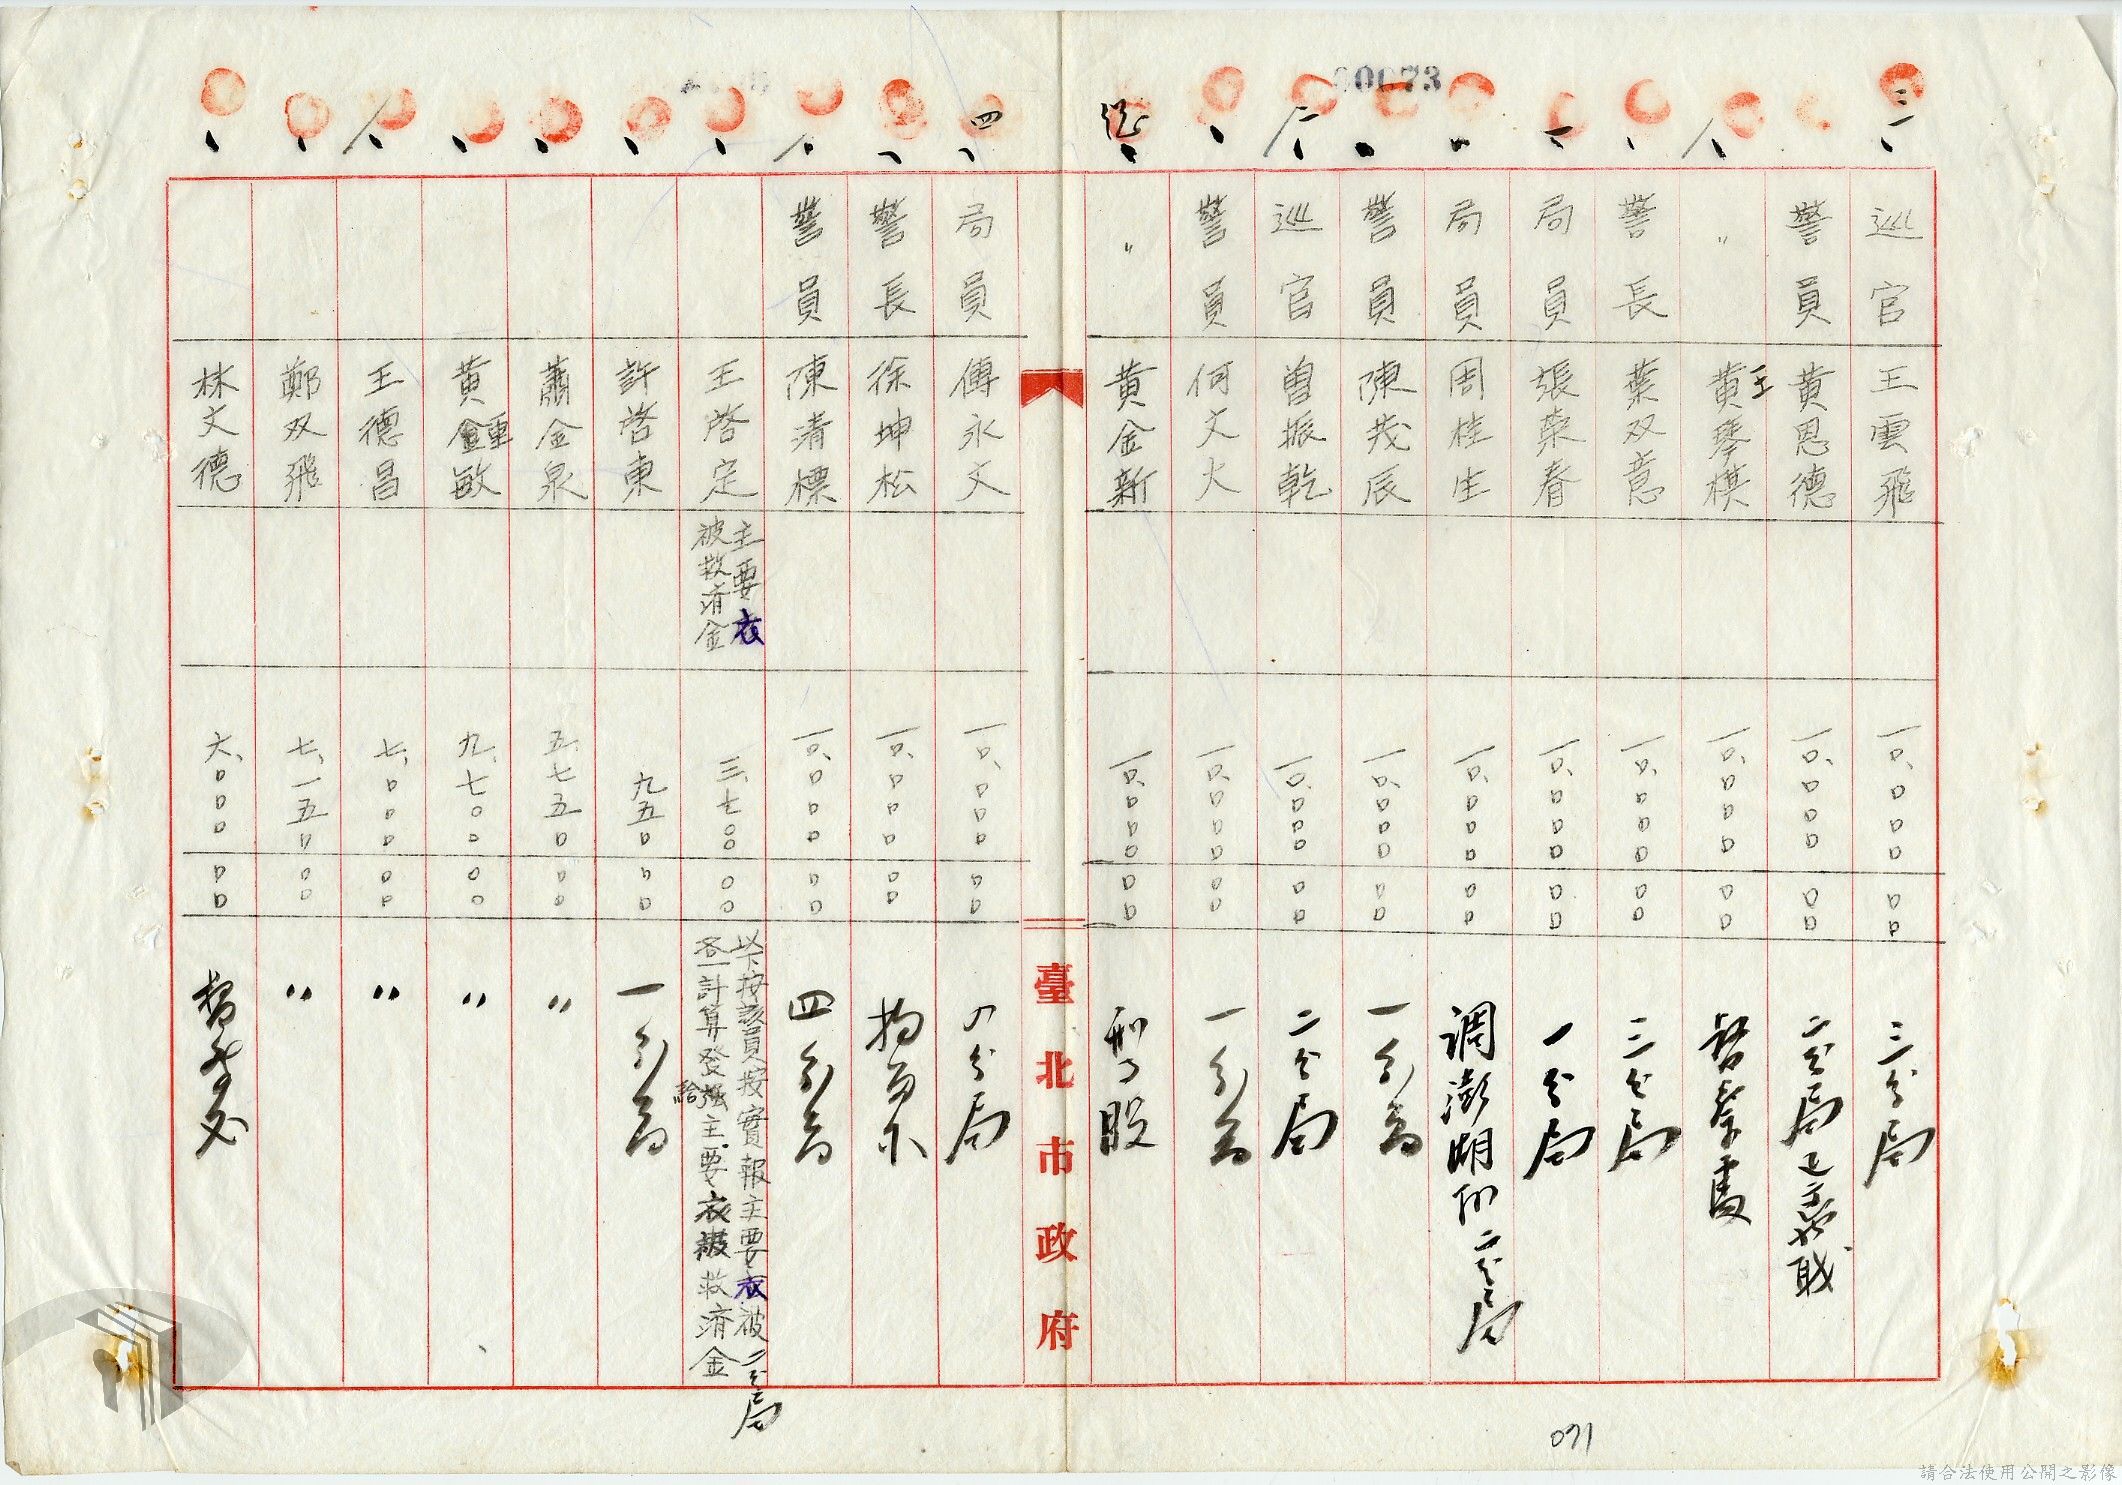 00073
三
巡官 王雲飛 一〇、〇〇〇 〇〇 三分局
警員 黃恩德 一〇、〇〇〇 〇〇 二分局
〃 黃琴棋 王 一〇、〇〇〇 〇〇 督察處
警長 葉双意 一〇、〇〇〇 〇〇 三分局
局員 張榮春 一〇、〇〇〇 〇〇 一分局
局員 周桂生 一〇、〇〇〇 〇〇 调澎湖 二分局
警員 陳茂辰 一〇、〇〇〇 〇〇 一分局
巡官 曾振乾 一〇、〇〇〇 〇〇 二分局
警員 何文火 一〇、〇〇〇 〇〇 一分局
〃 黃金新 一〇、〇〇〇 〇〇 刑股
臺北市政府
四
局員 傅永文 一〇、〇〇〇 〇〇 分局
警長 徐坤松 一〇、〇〇〇 〇〇 拘留所
警員 陳清標 一〇、〇〇〇 〇〇 四分局
王啓定 主要衣被救濟金 三、七〇〇 〇〇 以下按該員按實報主要衣被各一計算發給主要衣被救濟金 二分局
許啓東 九五〇 〇〇 一分局
蕭金泉 五、七五〇 〇〇 〃
黃鍾敏 九、七〇〇 〇〇 〃
王德昌 七、〇〇〇 〇〇 〃
鄭双飛 七、一五〇 〇〇 〃
林文德 六、〇〇〇 〇〇
071
請合法使用公開之影像